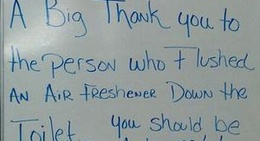 A Big Thank you to
the person who Flushed
AN AIR FRESHENER DOWN the
Toilet. you should be